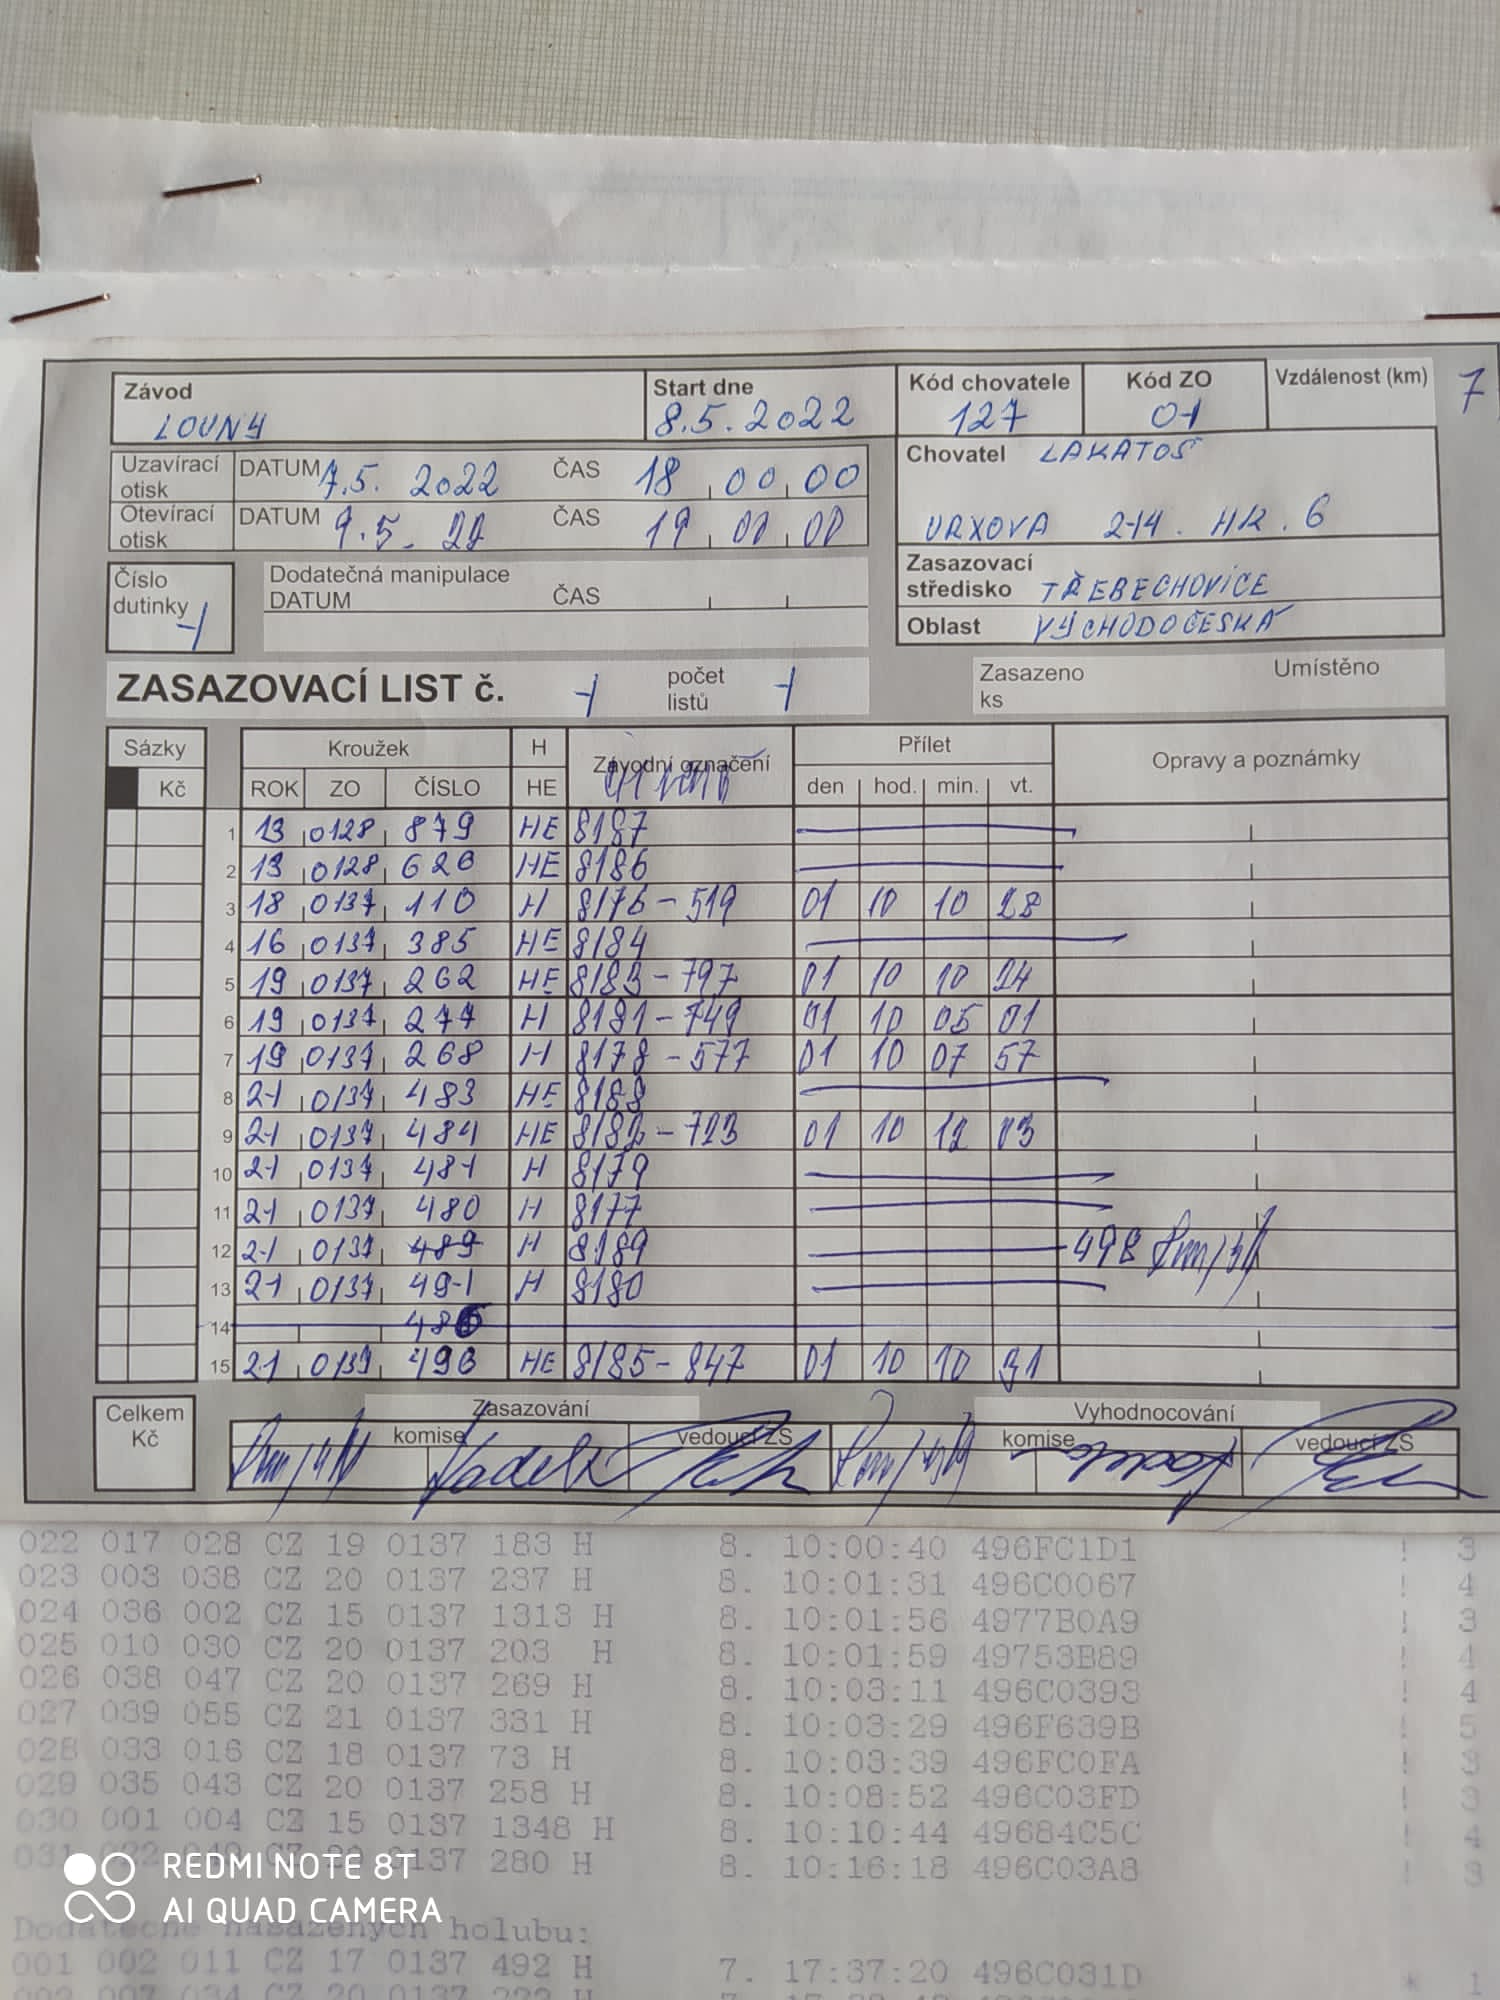 7
Závod LOUNY
Start dne 8.5.2022
Kód chovatele 127
Kód ZO 01
Vzdálenost (km)
Uzavírací otisk DATUM 7.5. 2022 ČAS 18 00 00
Otevírací otisk DATUM 9.5. 22 ČAS 19 00 00
Chovatel LAKATOŠ
URXOVA 214. HK. 6
Číslo dutinky 1
Dodatečná manipulace
DATUM ČAS
Zasazovací středisko TŘEBECHOVICE
Oblast VÝCHODOČESKÁ
ZASAZOVACÍ LIST č. 1 počet listů 1
Zasazeno ks Umístěno
Sázky Kroužek H Závodní označení Přílet Opravy a poznámky
Kč ROK ZO ČÍSLO HE den hod. min. vt.
1 13 0128 879 HE 8187
2 13 0128 626 HE 8186
3 18 0137 110 H 8176-519 01 10 10 28
4 16 0137 385 HE 8184
5 19 0137 262 HE 8183-797 01 10 10 24
6 19 0137 277 H 8181-749 01 10 05 01
7 19 0137 268 H 8178-577 01 10 07 57
8 21 0137 483 HE 8188
9 21 0137 484 HE 8182-723 01 10 12 03
10 21 0137 481 H 8179
11 21 0137 480 H 8177
12 21 0137 489 H 8189 498
13 21 0137 491 H 8180
14 486
15 21 0137 496 HE 8185-847 01 10 10 31
Celkem Kč
Zasazování Vyhodnocování
komise vedoucí ZS komise vedoucí ZS
022 017 028 CZ 19 0137 183 H 8. 10:00:40 496FC1D1 ! 3
023 003 038 CZ 20 0137 237 H 8. 10:01:31 496C0067 ! 4
024 036 002 CZ 15 0137 1313 H 8. 10:01:56 4977B0A9 ! 3
025 010 030 CZ 20 0137 203 H 8. 10:01:59 49753B89 ! 4
026 038 047 CZ 20 0137 269 H 8. 10:03:11 496C0393 ! 4
027 039 055 CZ 21 0137 331 H 8. 10:03:29 496F639B ! 5
028 033 016 CZ 18 0137 73 H 8. 10:03:39 496FC0FA ! 3
029 035 043 CZ 20 0137 258 H 8. 10:08:52 496C03FD ! 3
030 001 004 CZ 15 0137 1348 H 8. 10:10:44 49684C5C ! 4
0137 280 H 8. 10:16:18 496C03A8 ! 3
REDMI NOTE 8T
AI QUAD CAMERA
Dodatecne nasazenych holubu:
001 002 011 CZ 17 0137 492 H 7. 17:37:20 496C031D * 1